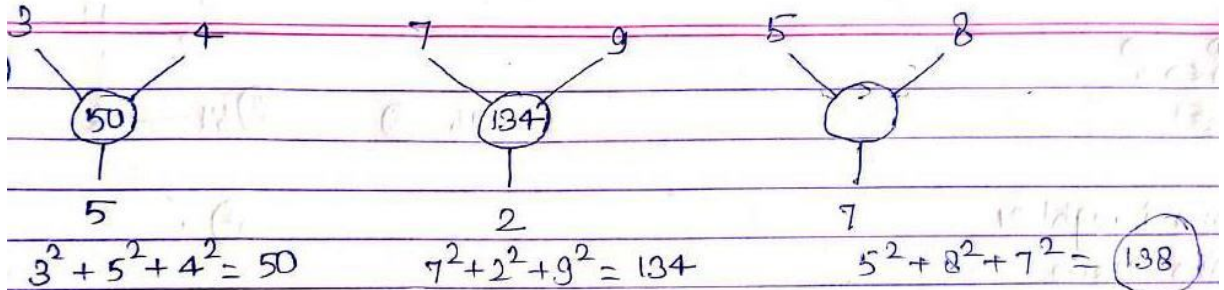 3 4 7 9 5 8
50 134
5 2 7
3² + 5² + 4² = 50 7² + 2² + 9² = 134 5² + 8² + 7² = 138